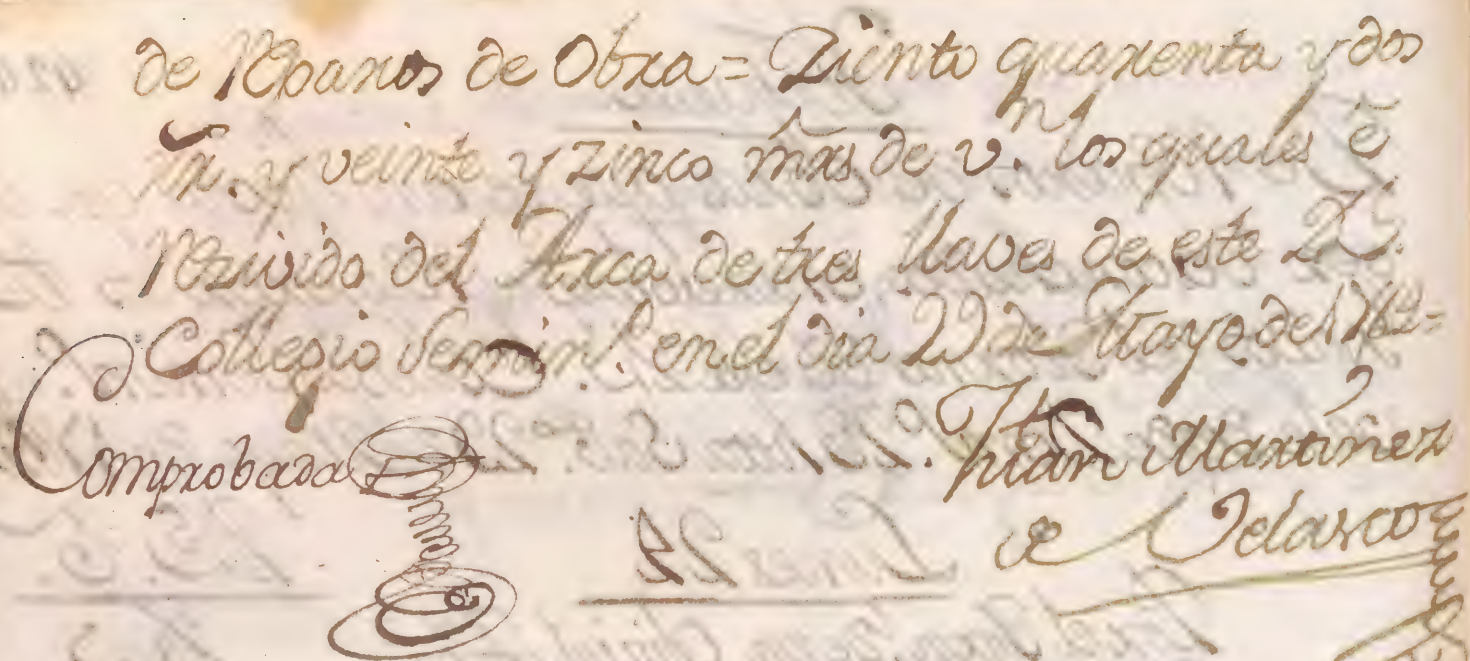 de Reparos de Obra = Ziento quarenta y dos
rr.ˢ y veinte y zinco mrs̃ de v.ⁿ los quales e
Rezivido del Arca de tres llaves de este R.ˡ
Collegio Semin.ˡ en el dia 29 de Mayo de 1762=
Comprobada
Juan Martinez
de Velasco